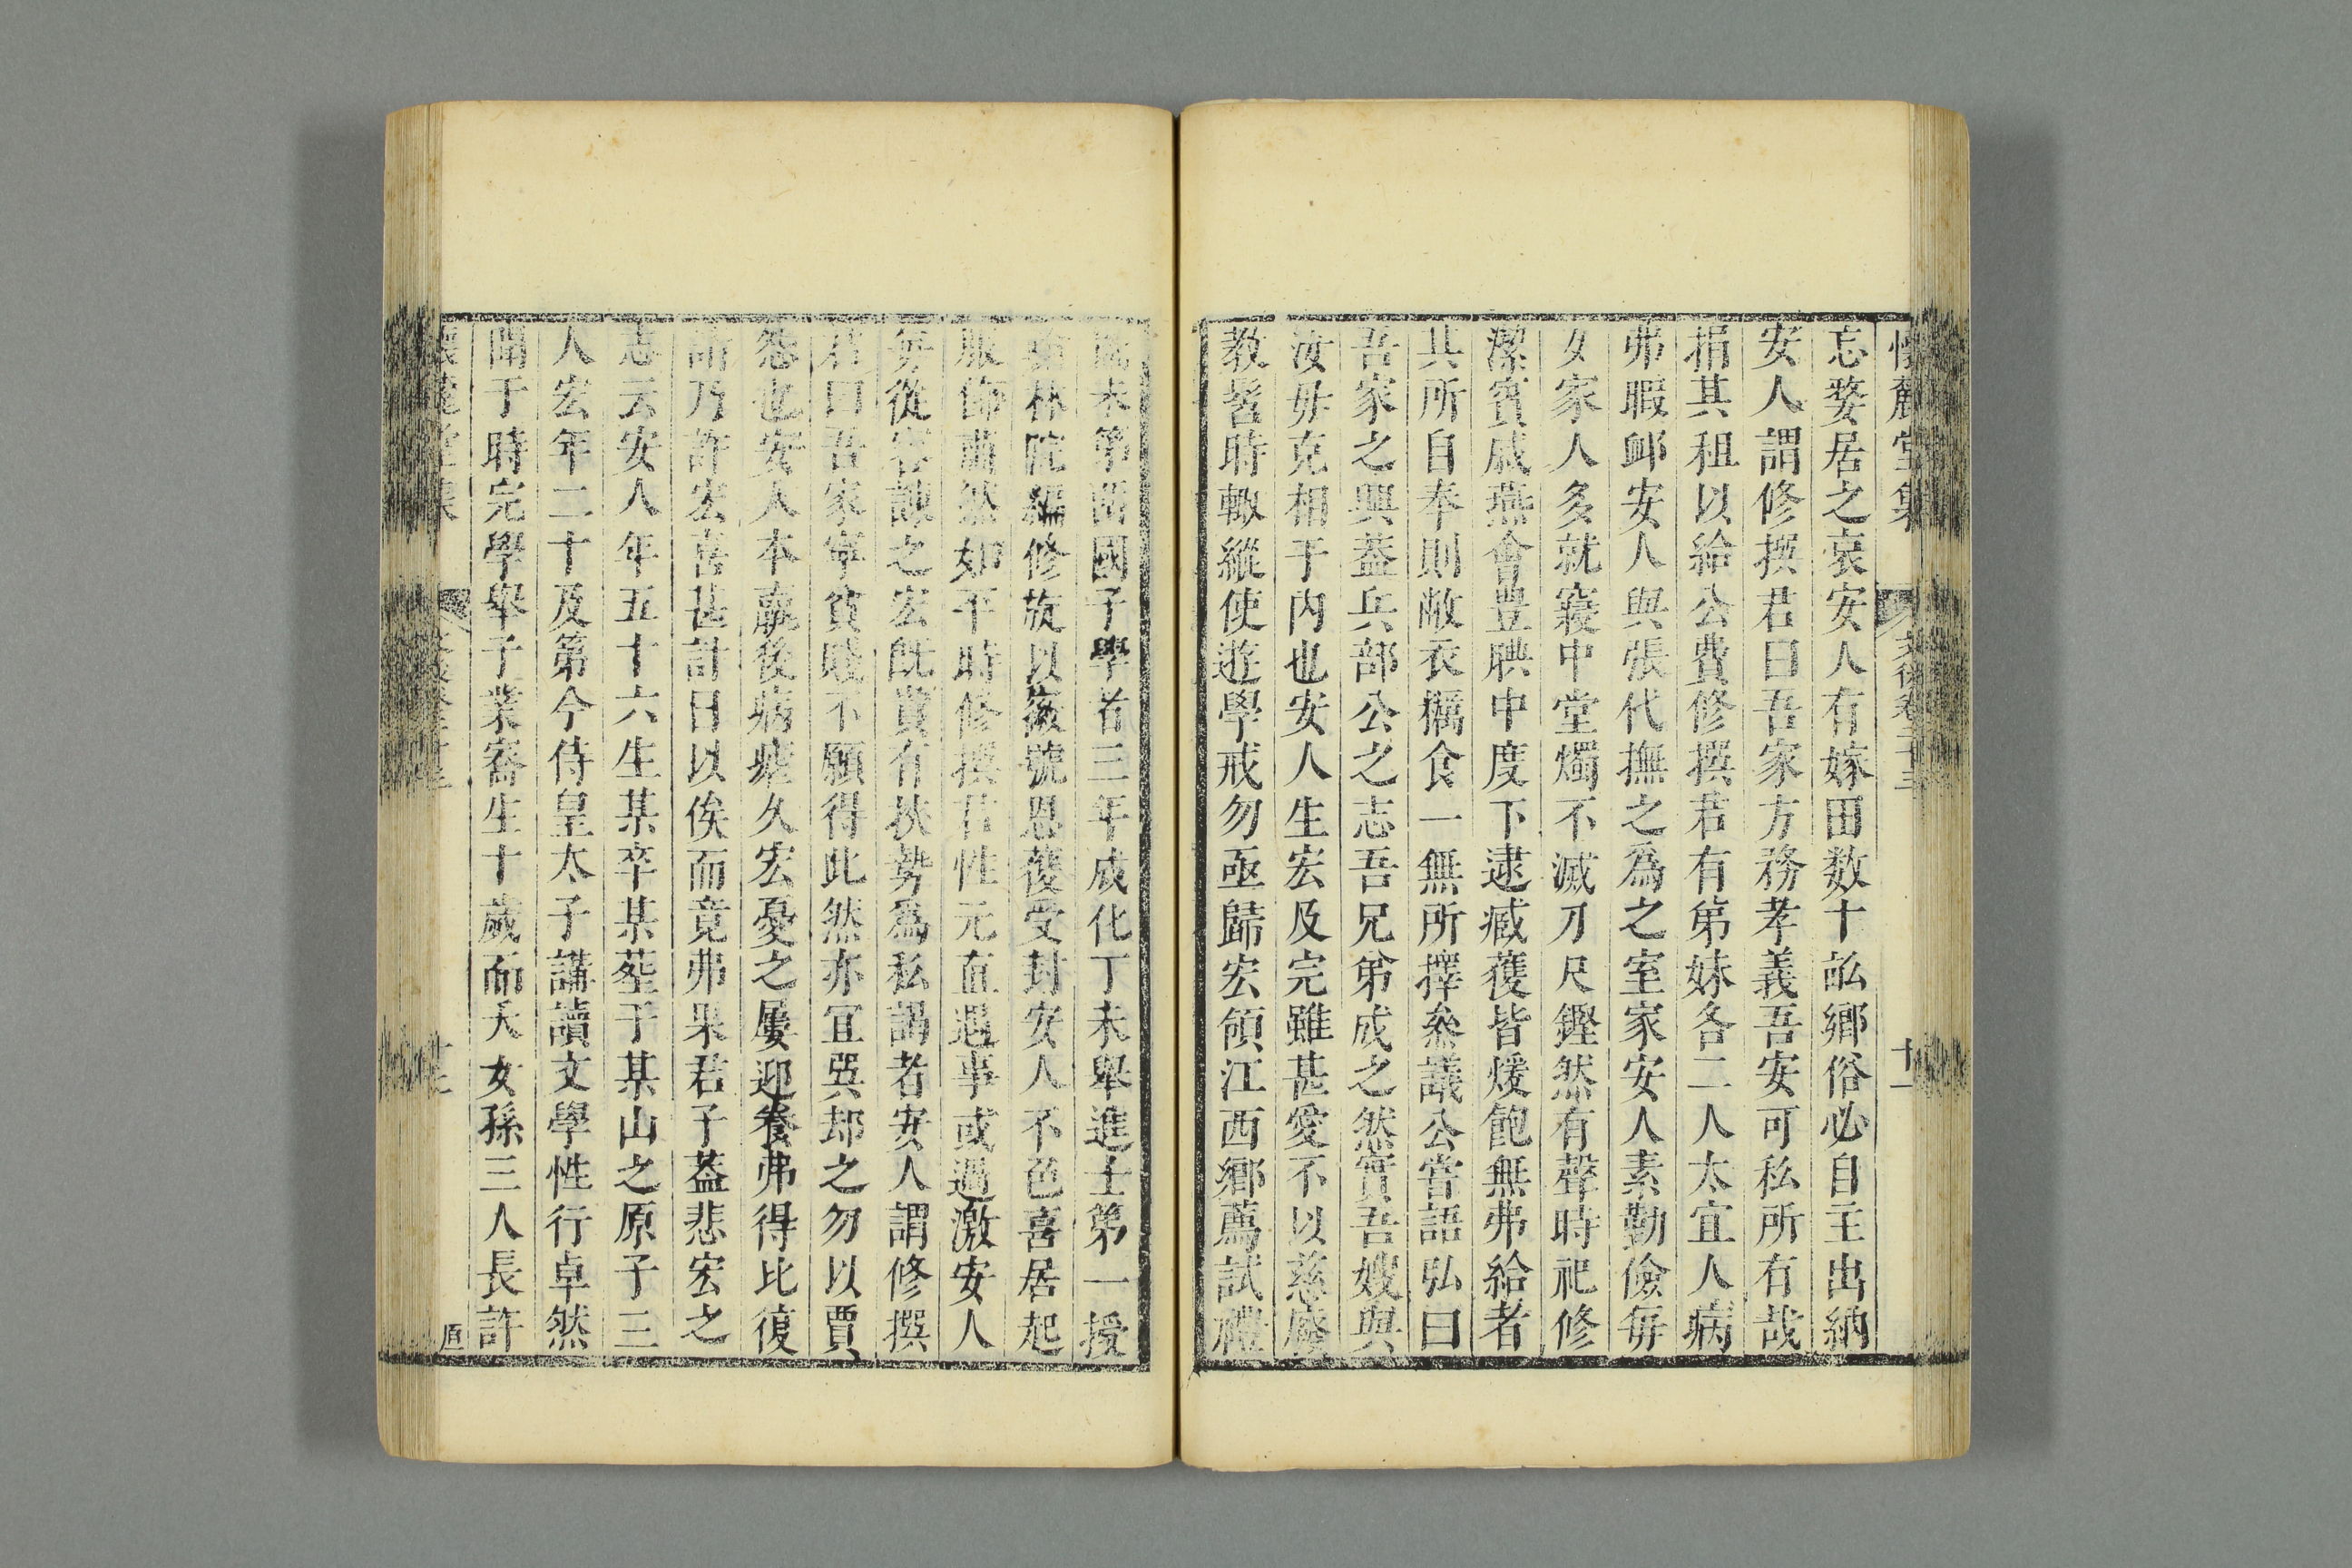 懷麓堂集 文後卷二十三 十一
忘婺居之哀安人有嫁田数十畝鄉俗必自主出納
安人謂修撰君曰吾家方務孝義吾安可私所有哉
捐其租以給公費修撰君有弟妹各二人太宜人病
弗暇卹安人與張代撫之為之室家安人素勤儉每
女家人多就寢中堂燭不滅刀尺鏗然有聲時祀修
潔賓戚燕會豊腆中度下逮臧獲皆煖飽無弗給者
其所自奉則敝衣糲食一無所擇叅議公嘗語弘曰
吾家之興葢兵部公之志吾兄弟成之然實吾嫂與
汝母克相于內也安人生宏及完雖甚愛不以慈廢
教髫時輙縱使遊學戒勿亟歸宏領江西鄉薦試禮
部未第留國子學者三年成化丁未舉進士第一授
翰林院編修故以徽號恩復受封安人不色喜居起
服飾蕭然如平時修撰君性元直遇事或過激安人
每從容諫之宏旣貴有挾勢為私謁者安人謂修撰
君曰吾家寧貧賤不願得此然亦宜巽却之勿以賈
怨也安人本羸後病瘧久宏憂之屢迎養弗得比復
請乃許宏喜甚計日以俟而竟弗果君子葢悲宏之
志云安人年五十六生某卒某塟于某山之原子三
人宏年二十及第今侍皇太子講讀文學性行卓然
聞于時完學舉子業寄生十歲而夭女孫三人長許